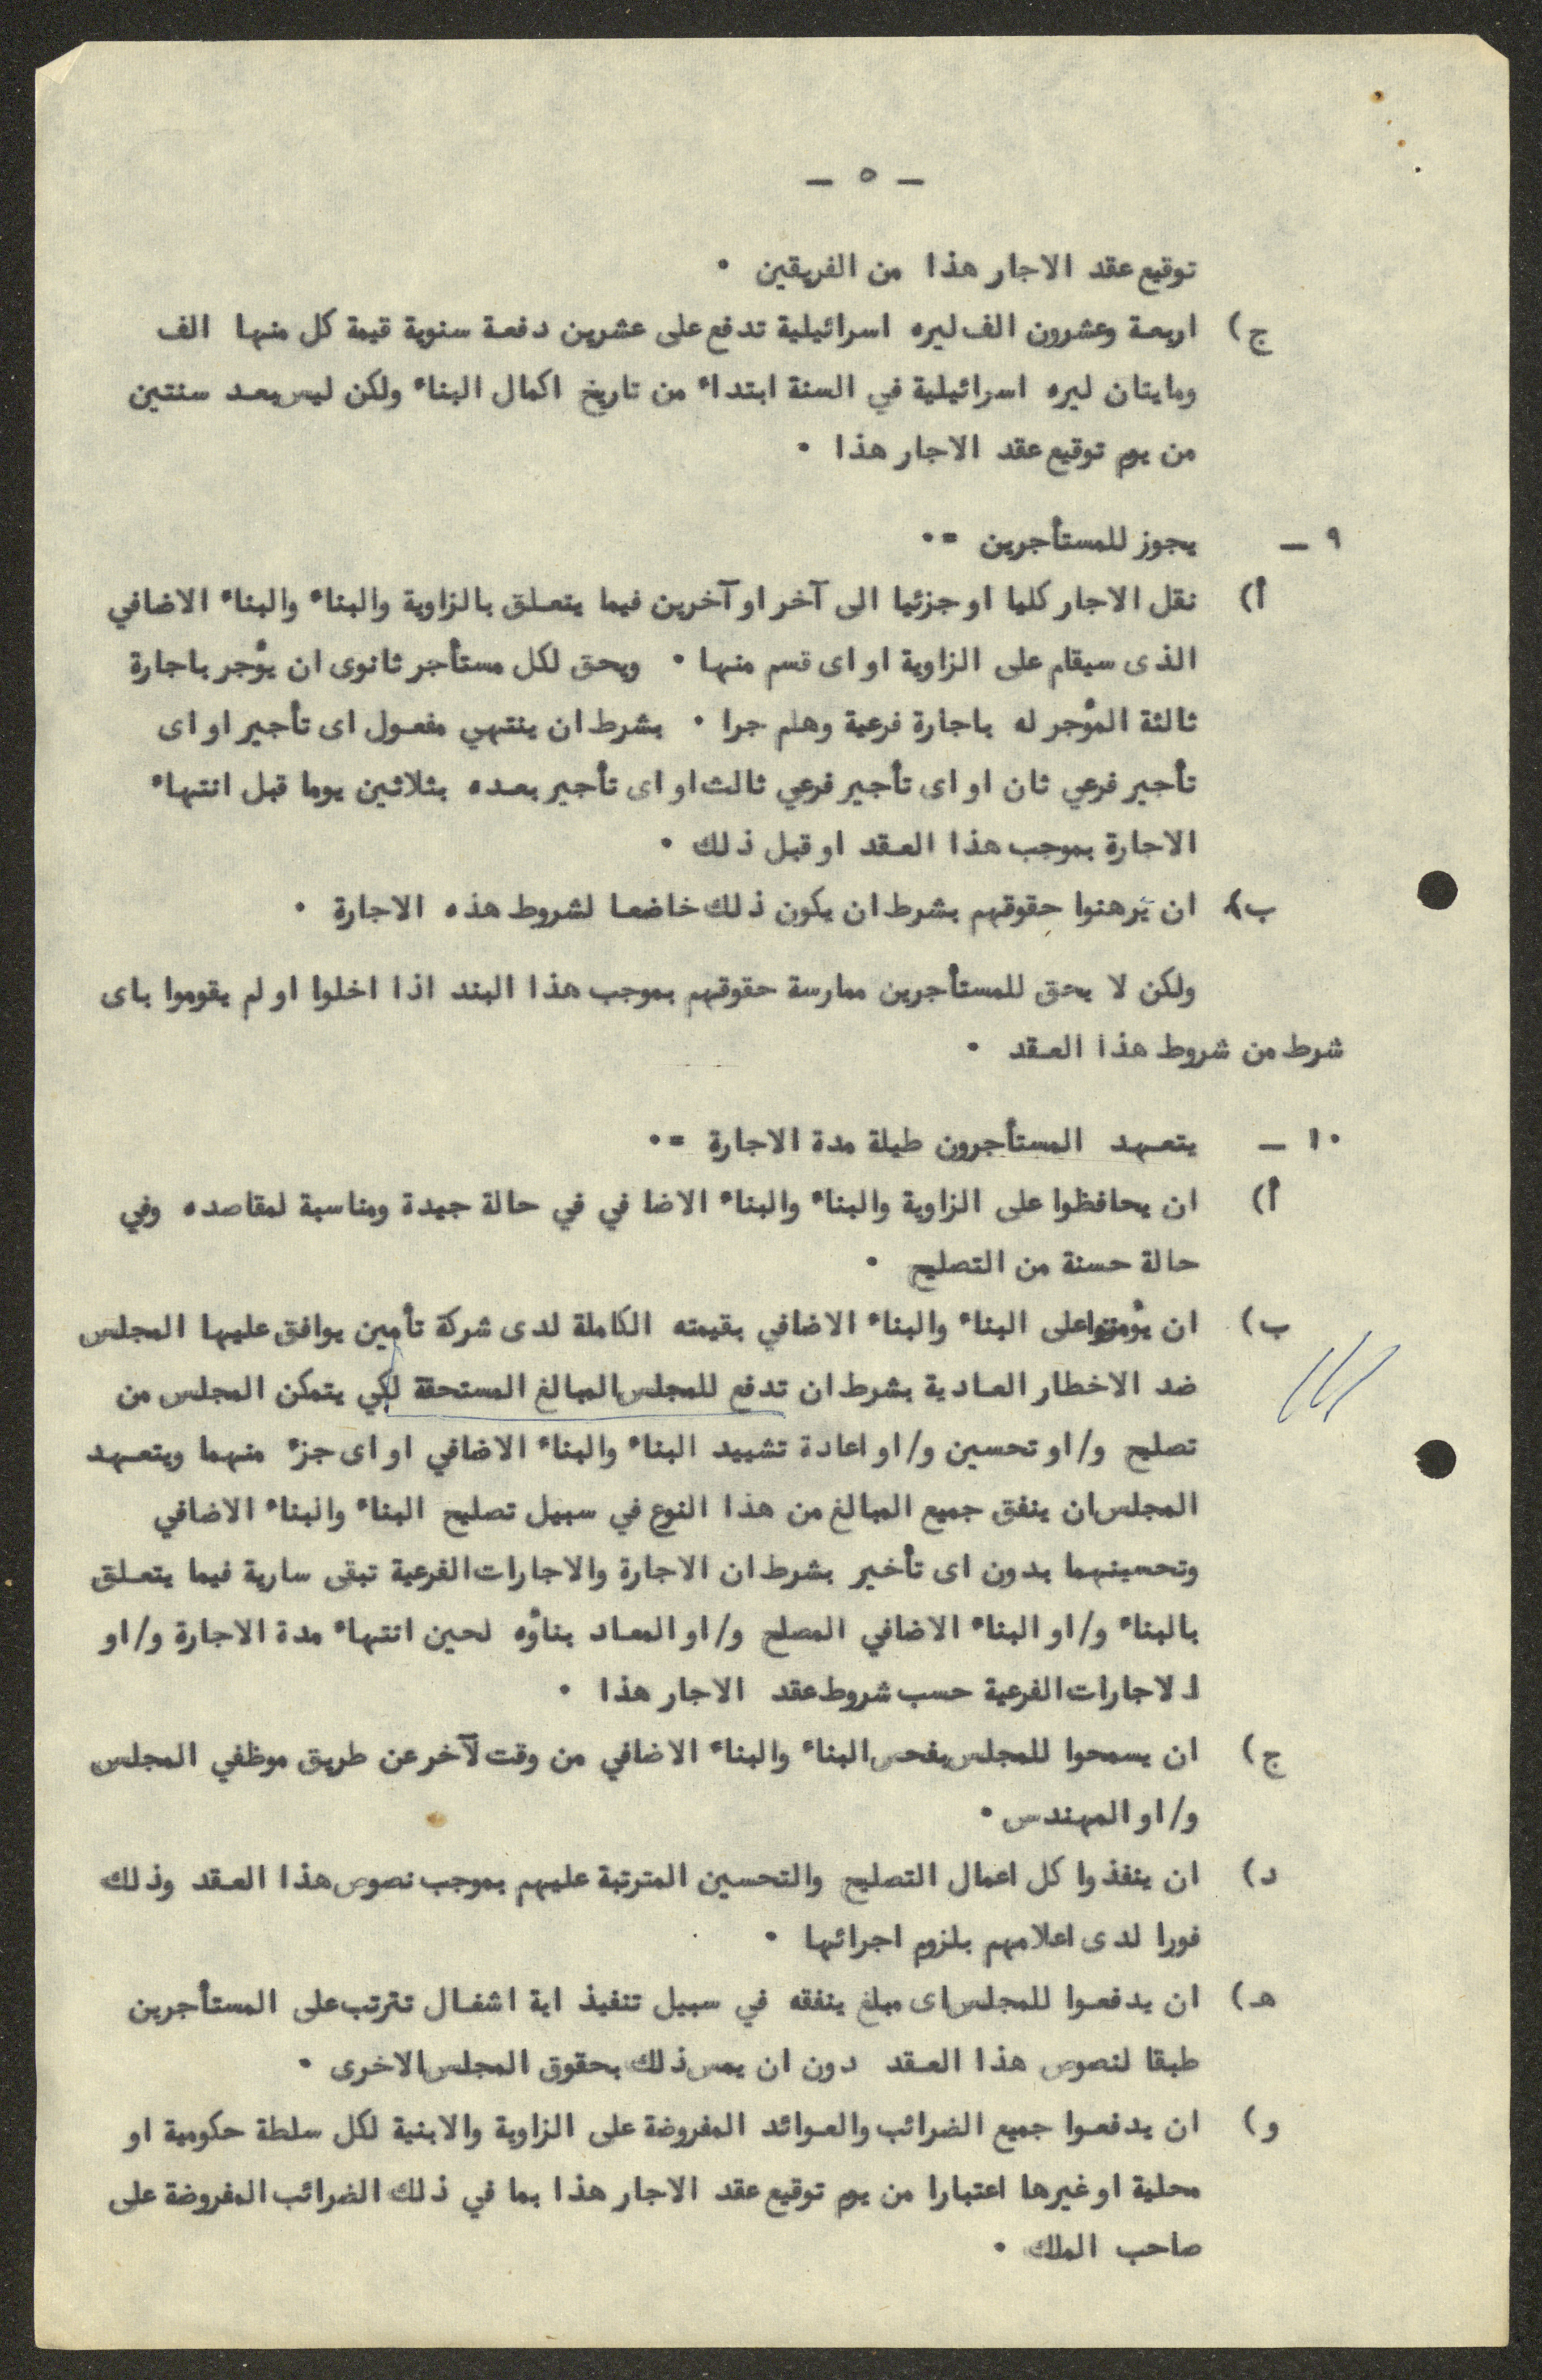 ـ ٥ ـ
توقيع عقد الاجار هذا من الفريقين ٠
ج) اربعة وعشرون الف ليره اسرائيلية تدفع على عشرين دفعة سنوية قيمة كل منها الف
ومايتان ليره اسرائيلية في السنة ابتداء من تاريخ اكمال البناء ولكن ليس بعد سنتين
من يوم توقيع عقد الاجار هذا ٠
٩ ـ يجوز للمستأجرين =٠
أ) نقل الاجار كليا او جزئيا الى آخر او آخرين فيما يتعلق بالزاوية والبناء والبناء الاضافي
الذى سيقام على الزاوية او اى قسم منها ٠ ويحق لكل مستأجر ثانوى ان يؤجر باجارة
ثالثة المؤجر له باجارة فرعية وهلم جرا ٠ بشرط ان ينتهي مفعول اى تأجير او اى
تأجير فرعي ثان او اى تأجير فرعي ثالث او اى تأجير بعده بثلاثين يوما قبل انتهاء
الاجارة بموجب هذا العقد او قبل ذلك ٠
ب) ان يرهنوا حقوقهم بشرط ان يكون ذلك خاضعا لشروط هذه الاجارة ٠
ولكن لا يحق للمستأجرين ممارسة حقوقهم بموجب هذا البند اذا اخلوا او لم يقوموا باى
شرط من شروط هذا العقد ٠
١٠ ـ يتعهد المستأجرون طيلة مدة الاجارة =٠
أ) ان يحافظوا على الزاوية والبناء والبناء الاضا في في حالة جيدة ومناسبة لمقاصده وفي
حالة حسنة من التصليح ٠
ب) ان يؤمنوا على البناء والبناء الاضافي بقيمته الكاملة لدى شركة تأمين يوافق عليها المجلس
ضد الاخطار العادية بشرط ان تدفع للمجلس المبالغ المستحقة لكي يتمكن المجلس من
تصليح و/او تحسين و/او اعادة تشييد البناء والبناء الاضافي او اى جزء منهما ويتعهد
المجلس ان ينفق جميع المبالغ من هذا النوع في سبيل تصليح البناء والبناء الاضافي
وتحسينهما بدون اى تأخير بشرط ان الاجارة والاجارات الفرعية تبقى سارية فيما يتعلق
بالبناء و/او البناء الاضافي المصلح و/او المعاد بناؤه لحين انتهاء مدة الاجارة و/او
ا لاجارات الفرعية حسب شروط عقد الاجار هذا ٠
ج) ان يسمحوا للمجلس بفحص البناء والبناء الاضافي من وقت لآخر عن طريق موظفي المجلس
و/او المهندس ٠
د) ان ينفذوا كل اعمال التصليح والتحسين المترتبة عليهم بموجب نصوص هذا العقد وذلك
فورا لدى اعلامهم بلزوم اجرائها ٠
هـ) ان يدفعوا للمجلس اى مبلغ ينفقه في سبيل تنفيذ اية اشغال تترتب على المستأجرين
طبقا لنصوص هذا العقد دون ان يمس ذلك بحقوق المجلس الاخرى ٠
و) ان يدفعوا جميع الضرائب والعوائد المفروضة على الزاوية والابنية لكل سلطة حكومية او
محلية او غيرها اعتبارا من يوم توقيع عقد الاجار هذا بما في ذلك الضرائب المفروضة على
صاحب الملك ٠